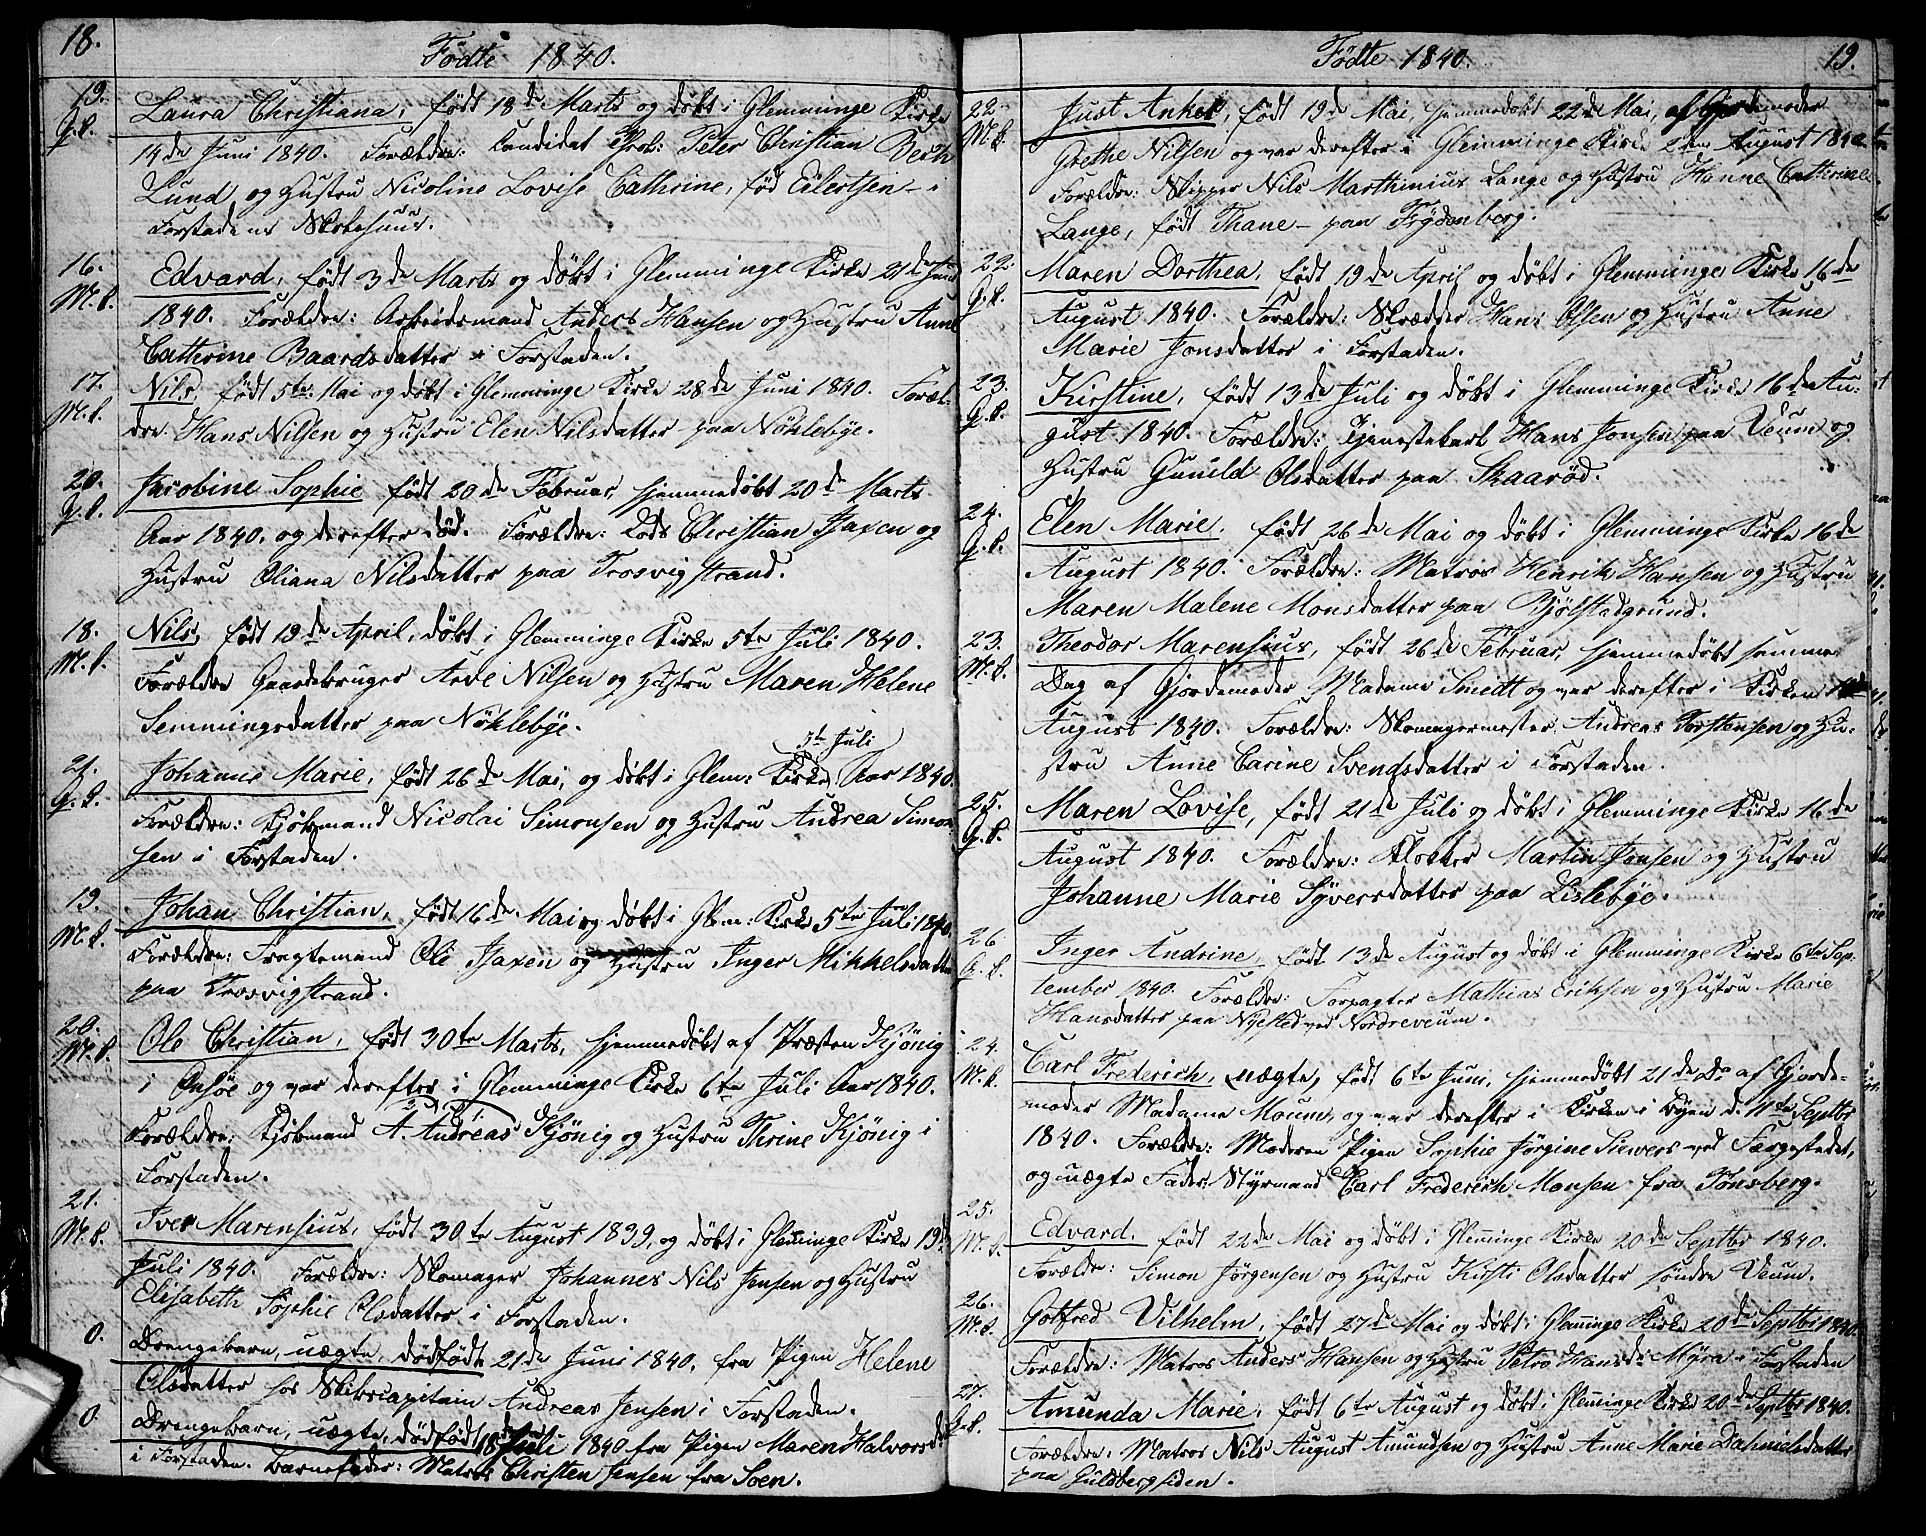 18.
Fødte 1840.
19.
Laura Christiana, født 18de Marts og døbt i Glemminge Kirke
P.B.
14de Juni 1840. Forældre: Candidat Peter Christian
Lund og Hustru Nicoline Lovise Cathrine, fød Eilertsen
Forstadens Skolehuus.
16.
Edvard, født 3de Marts og døbt i Glemminge Kirke 21de Juni
M.B.
1840. Forældre: Arbeidsmand Anders Hansen og Hustru Anne
Cathrine Baardsdatter i Forstaden.
17.
Nils, født 5te Mai og døbt i Glemminge Kirke 28de Juni 1840. Foræl-
M.B.
dre: Hans Nilsen og Hustru Elen Nilsdatter paa Nøkleby.
20.
Jacobine Sophie født 20de Februar, hjemmedøbt 20de Marts
P.B.
Aar 1840. og derefter død. Forældre: Lods Christian Isaxen og
Hustru Oliana Nilsdatter paa Trosvigstrand.
18.
Nils, født 19de April, døbt i Glemminge Kirke 5te Juli 1840.
M.B.
Forældre Gaardbruger Arne Nilsen og Hustru Maren Helene
Semmingsdatter paa Nøkleby.
5te Juli
21.
Johanne Marie, født 26de Mai, og døbt i Glem: Kirke Aar 1840.
P.B.
Forældre: Kjøbmand Nicolai Simonsen og Hustru Andrea Simon-
sen i Forstaden.
19.
Johan Christian, født 16de Mai og døbt i Glem: Kirke 5te Juli 1840.
M.B.
Forældre: Fragtemand Ole Isaxen og Hustru Inger Mikkelsdatter
paa Trosvigstrand.
20.
Ole Christian, født 30te Marts, hjemmedøbt af Præsten Kjønig
M.B.
i Onsøe og var derefter i Glemminge Kirke 6te Juli Aar 1840.
Forældre: Kjøbmand A. Andreas Kjønig og Hustru Thrine Kjønig i
Forstaden.
21.
Iver Marensius, født 30te August 1839, og døbt i Glemminge Kirke 19de
M.B.
Juli 1840. Forældre: Skomager Johannes Nils Jensen og Hustru
Elisabeth Sophie Olsdatter i Forstaden.
0.
Drengebarn, uægte, dødfødt 21de Juni 1840. fra Pigen Helene
Olsdatter hos Skibscapitain Andreas Jensen i Forstaden.
0.
Drengebarn, uægte, dødfødt 18de Juli 1840 fra Pigen Maren Halvorsd:
i Forstaden. Barnefader: Matros Christen Jensen fra Soen.
Fødte 1840.
19.
22.
Just Anker, født 19de Mai, hjemmedøbt 22de Mai, af Gjordemoder
M.B.
Grethe Nilsen og var derefter i Glemminge Kirke 2den August 1840
Forældre: Skipper Nils Marthinius Lange og Hustru Hanne Cathrine
Lange, født Thane – paa Frydenberg.
22.
Maren Dorthea, født 19de April og døbt i Glemminge Kirke 16de
P.B.
August 1840. Forældre: Skrædder Hans Olsen og Hustru Anne
Marie Jonsdatter i Forstaden.
23.
Kirstine, født 13de Juli og døbt i Glemminge Kirke 16de Au-
P.B.
gust 1840. Forældre: Tjenestekarl Hans Jonsen paa Veum og
Hustru Gunild Olsdatter paa Skaarød.
24.
Elen Marie, født 26de Mai og døbt i Glemminge Kirke 16de
P.B.
August 1840. Forældre: Matros Henrik Hansen og Hustru
Maren Malene Monsdatter paa Bjølstadgrund.
23.
Theodor Marensius, født 26de Februar, hjemmedøbt samme
M.B.
Dag af Gjordemoder Madame Smedt og var derefter i Kirken
August 1840. Forældre: Skomagermester Andreas Torstensen og Hu-
stru Anne Carine Svendsdatter i Forstaden.
25.
Maren Lovise, født 21de Juli og døbt i Glemminge Kirke 16de
P.B.
August 1840. Forældre: Klokker Martin Jonsen og Hustru
Johanne Marie Syversdatter paa Lisleby.
26.
Inger Andrine, født 13de August og døbt i Glemminge Kirke 6te Sep-
P.B.
tember 1840. Forældre: Forpagter Mathias Eriksen og Hustru Marie
Hansdatter paa Nyested ved Nordreveum.
24.
Carl Frederich, uægte, født 6te Juni, hjemmedøbt 21de Do af Gjorde-
M.B.
moder Madame Moum, og var derefter i Kirken i Byen d. 11te Septbr
1840. Forældre: Moderen Pigen Sophie Jørgine Siewers ved Færgestedet,
og uægte Fader: Styrmand Carl Frederich Monsen fra Tønsberg.
25.
Edvard, født 22de Mai og døbt i Glemminge Kirke 20de Septbr 1840.
M.B.
Forældre: Simon Jørgensen og Hustru Kirsti Olsdatter søndre Veum.
26.
Gotfred Vilhelm, født 27de Mai og døbt i Glemminge Kirke 20de Septbr 1840.
M.B.
Forældre: Matros Anders Hansen og Hustru Petro Hansdr Myra i Forstaden
27.
Amunda Marie, født 6te August og døbt i Glemminge Kirke 20de Septbr 1840.
P.B.
Forældre: Matros Nils August Amundsen og Hustru Anne Marie Dahnielsdatter
paa Guldbergsiden.